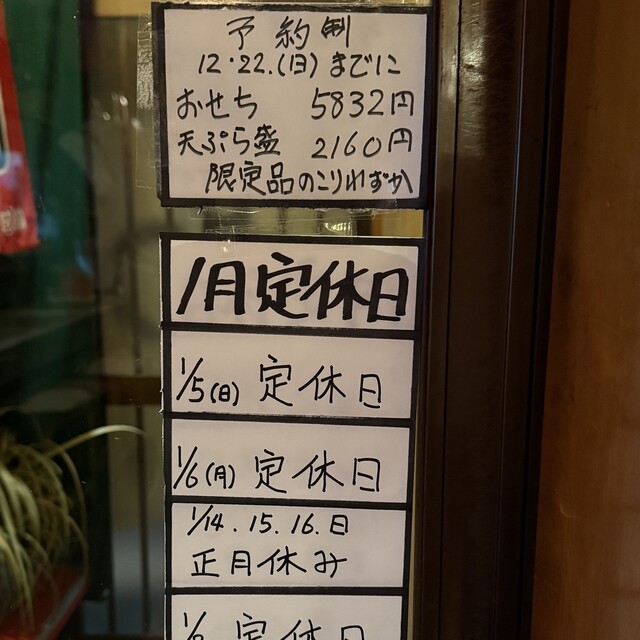 予約制
12・22.(日)までに
おせち 5832円
天ぷら盛 2160円
限定品のこりわずか
1月定休日
1/5(日) 定休日
1/6(月) 定休日
1/14.15.16.日
正月休み
定休日